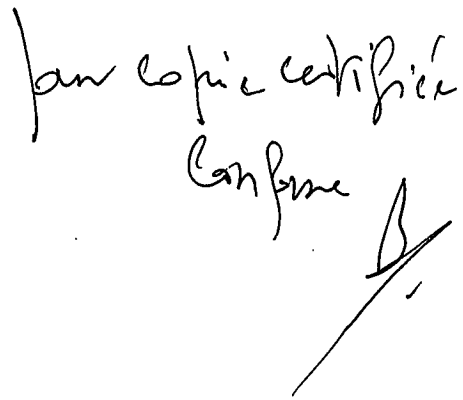 Pour copie certifiée
Conforme